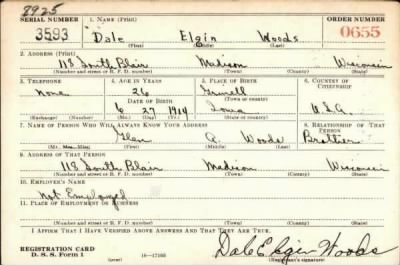 8925
SERIAL NUMBER 1. NAME (Print) ORDER NUMBER
3593 Dale Elgin Woods 0655
(First) (Middle) (Last)
2. ADDRESS (Print)
118 South Blair Madison Wisconsin
(Number and street or R. F. D. number) (Town) (County) (State)
3. TELEPHONE 4. AGE IN YEARS 5. PLACE OF BIRTH 6. COUNTRY OF CITIZENSHIP
None 26 Grinnell
DATE OF BIRTH (Town or county)
6 27 1914 Iowa U.S.A.
(Exchange) (Number) (Mo.) (Day) (Yr.) (State or country)
7. NAME OF PERSON WHO WILL ALWAYS KNOW YOUR ADDRESS 8. RELATIONSHIP OF THAT PERSON
Glen Woods Brother
(Mr., Mrs., Miss) (First) (Middle) (Last)
9. ADDRESS OF THAT PERSON
118 South Blair Madison Wisconsin
(Number and street or R. F. D. number) (Town) (County) (State)
10. EMPLOYER'S NAME
Not Employed
11. PLACE OF EMPLOYMENT OR BUSINESS
(Number and street or R. F. D. number) (Town) (County) (State)
I AFFIRM THAT I HAVE VERIFIED ABOVE ANSWERS AND THAT THEY ARE TRUE.
REGISTRATION CARD
D. S. S. FORM 1 (over) 16—17105 Dale Elgin Woods
(Registrant's signature)